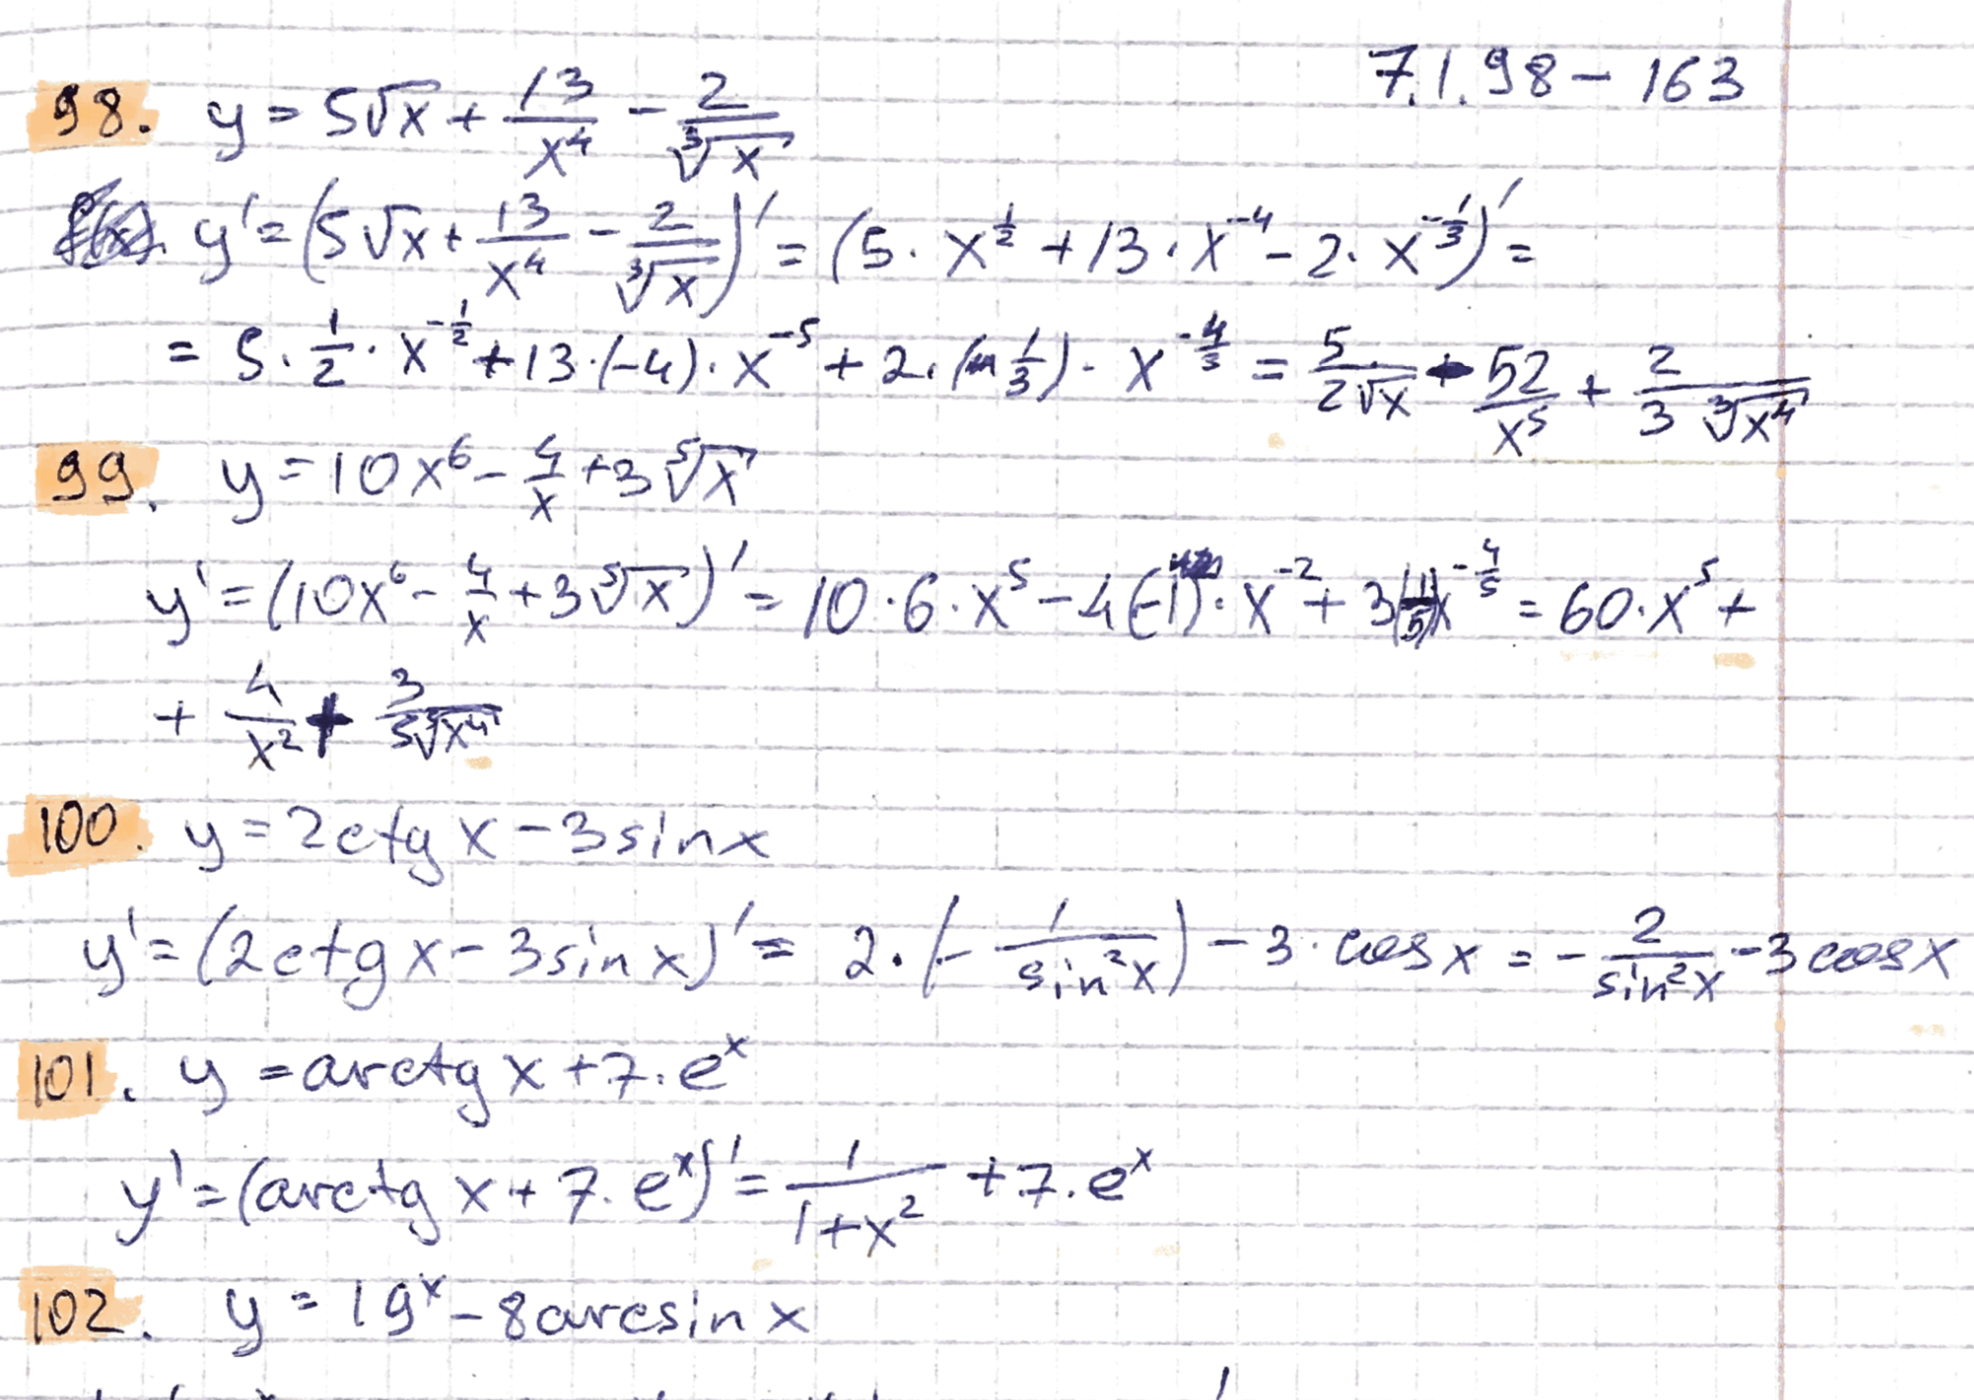 7.1.98 – 163
98. y = 5√x + 13/x⁴ − 2/∛x
y' = (5√x + 13/x⁴ − 2/∛x)' = (5 · x^(1/2) + 13 · x^(−4) − 2 · x^(−1/3))' =
= 5 · 1/2 · x^(−1/2) + 13 · (−4) · x^(−5) + 2 · (1/3) · x^(−4/3) = 5/(2√x) − 52/x⁵ + 2/(3∛x⁴)
99. y = 10x⁶ − 4/x + 3⁵√x
y' = (10x⁶ − 4/x + 3⁵√x)' = 10 · 6 · x⁵ − 4(−1) · x^(−2) + 3(1/5)x^(−4/5) = 60 · x⁵ +
+ 4/x² + 3/(5⁵√x⁴)
100. y = 2ctg x − 3sin x
y' = (2ctg x − 3sin x)' = 2 · (− 1/sin²x) − 3 · cos x = − 2/sin²x − 3 cos x
101. y = arctg x + 7 · eˣ
y' = (arctg x + 7 · eˣ)' = 1/(1+x²) + 7 · eˣ
102. y = 19ˣ − 8arcsin x